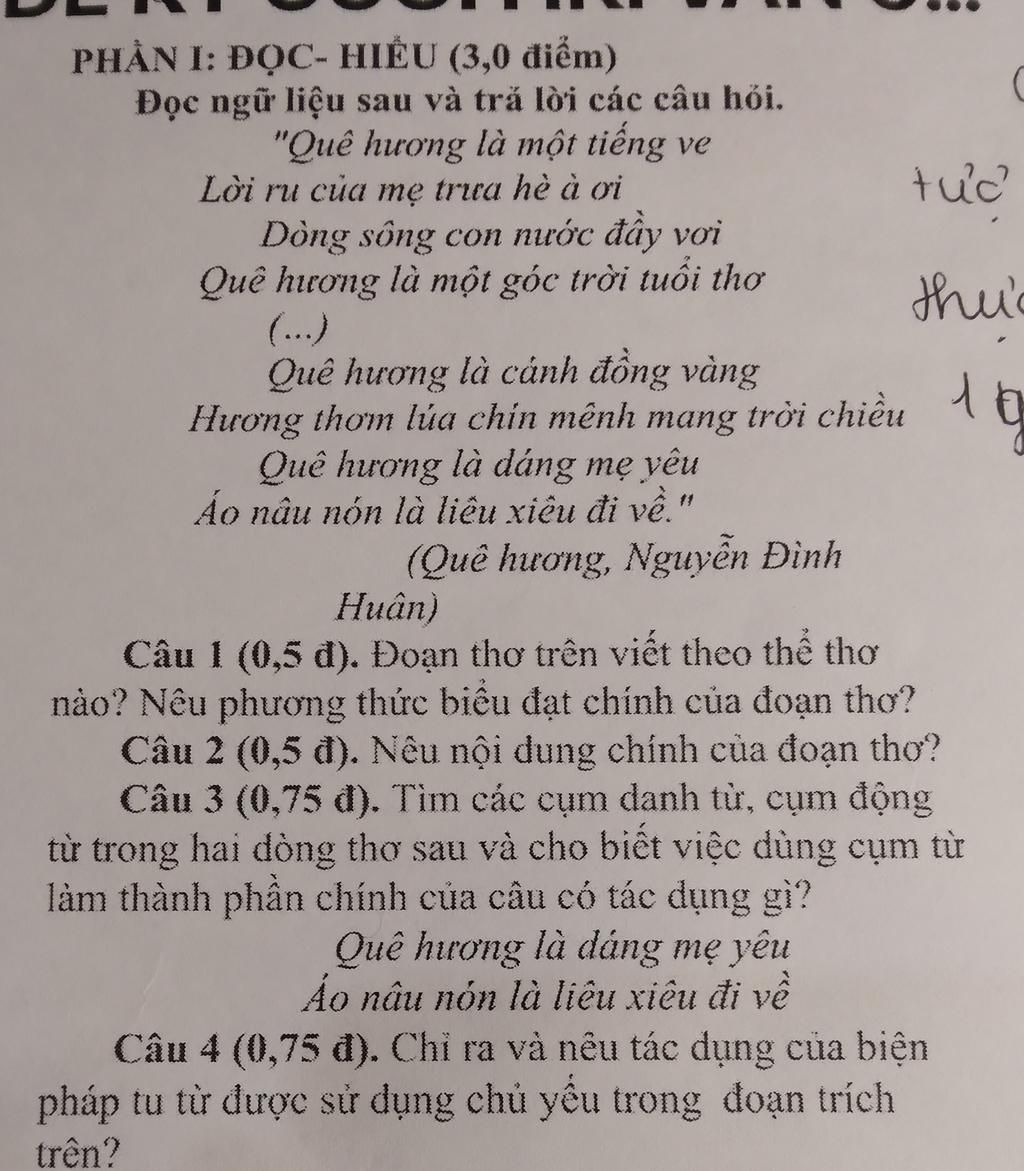 PHẦN I: ĐỌC- HIỂU (3,0 điểm)
Đọc ngữ liệu sau và trả lời các câu hỏi.
"Quê hương là một tiếng ve
Lời ru của mẹ trưa hè à ơi
Dòng sông con nước đầy vơi
Quê hương là một góc trời tuổi thơ
(...)
Quê hương là cánh đồng vàng
Hương thơm lúa chín mênh mang trời chiều
Quê hương là dáng mẹ yêu
Áo nâu nón lá liêu xiêu đi về."
(Quê hương, Nguyễn Đình
Huân)
Câu 1 (0,5 đ). Đoạn thơ trên viết theo thể thơ
nào? Nêu phương thức biểu đạt chính của đoạn thơ?
Câu 2 (0,5 đ). Nêu nội dung chính của đoạn thơ?
Câu 3 (0,75 đ). Tìm các cụm danh từ, cụm động
từ trong hai dòng thơ sau và cho biết việc dùng cụm từ
làm thành phần chính của câu có tác dụng gì?
Quê hương là dáng mẹ yêu
Áo nâu nón lá liêu xiêu đi về
Câu 4 (0,75 đ). Chỉ ra và nêu tác dụng của biện
pháp tu từ được sử dụng chủ yếu trong đoạn trích
trên?